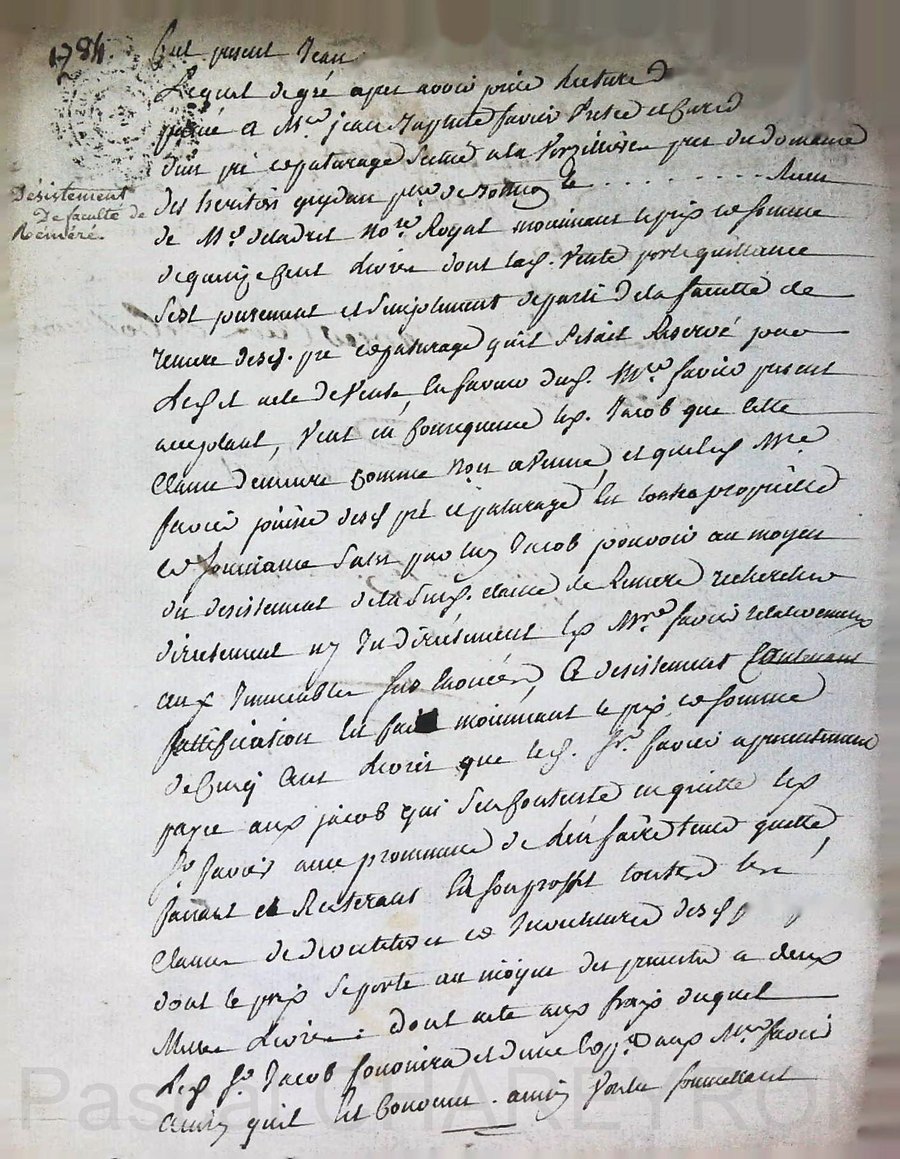 1784.
Fut présent Jean
Lequel de gré apres avoir prise lecture
passé a Mre jean Baptiste favier Prêtre et Curé
d'un pré et paturage Scitué a la pres du domaine
Désistement
De faculté de
Réméré.
des heritiers le . . . . . . . . . . Recu
de Me Notre Royal moiennant le prix et somme
de quinze Cent Livres dont lad. Vente porte quittance
S'est purement et simplement departi de la faculté de
remere desd. pré et paturage qu'il s'etait Reservé pour
Led. acte de Vente, En faveur dud. Mre favier present
acceptant, Veut en Consequence led. Jacob que cette
Clause demeure Comme Non avenue, et que led Mre
favier jouisse desd pré et paturage En toutte proprietté
et jouissance Sans que led Jacob pouvoir au moyen
du desistement de la Susd. clause de Remere rechercher
directement ny Indirectement led Mre favier relativement
aux Immeubles sus Enoncés, Ce desistement Contenant
rattification Est fait moiennant le prix et somme
de Cinq Cent Livres que led. Sr. favier a presentement
payée aud jacob qui S'en Contente en quitte led
Sr favier avec promesse de L'en faire tenir quitte,
faisant et Reiterant En son proffit touttes les
Clauses de et desd
dont le prix Se porte au moyen des presentes a deux
Mille Livres : dont acte aux frais duquel
Led Sr. Jacob fournira et d'une Coppie aud Mre favier
ainsy qu'il Est Convenu . ainsy Voulu soumettant
Pascal CHAREYRON